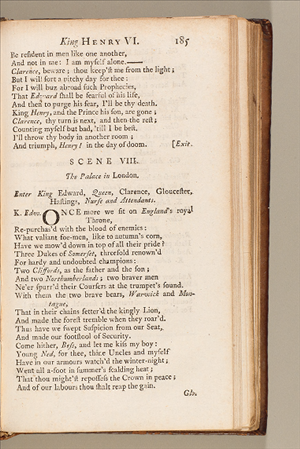 King HENRY VI. 185
Be resident in men like one another,
And not in me: I am myself alone.——
Clarence, beware; thou keep'st me from the light;
But I will sort a pitchy day for thee:
For I will buz abroad such Prophecies,
That Edward shall be fearful of his life,
And then to purge his fear, I'll be thy death.
King Henry, and the Prince his son, are gone;
Clarence, thy turn is next, and then the rest;
Counting myself but bad, 'till I be best.
I'll throw thy body in another room;
And triumph, Henry! in the day of doom. [Exit.
SCENE VIII.
The Palace in London.
Enter King Edward, Queen, Clarence, Gloucester,
Hastings, Nurse and Attendants.
K. Edw. ONCE more we sit on England's royal
Throne,
Re-purchas'd with the blood of enemies:
What valiant foe-men, like to autumn's corn,
Have we mow'd down in top of all their pride?
Three Dukes of Somerset, threefold renown'd
For hardy and undoubted champions:
Two Cliffords, as the father and the son;
And two Northumberlands; two braver men
Ne'er spurr'd their Coursers at the trumpet's sound.
With them the two brave bears, Warwick and Mon-
tague,
That in their chains fetter'd the kingly Lion,
And made the forest tremble when they roar'd.
Thus have we swept Suspicion from our Seat,
And made our footstool of Security.
Come hither, Bess, and let me kiss my boy:
Young Ned, for thee, thine Uncles and myself
Have in our armours watch'd the winter-night;
Went all a-foot in summer's scalding heat;
That thou might'st repossess the Crown in peace;
And of our labours thou shalt reap the gain.
Glo.